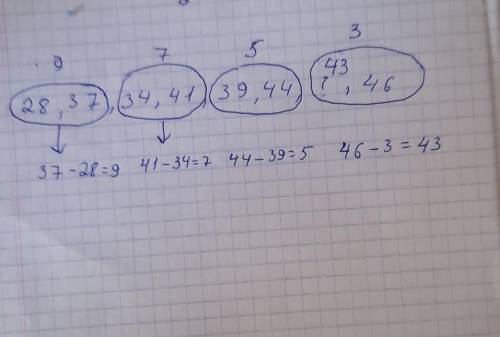 9 7 5 3
43
28, 37, 34, 41, 39, 44, ?, 46
37-28=9 41-34=7 44-39=5 46-3=43